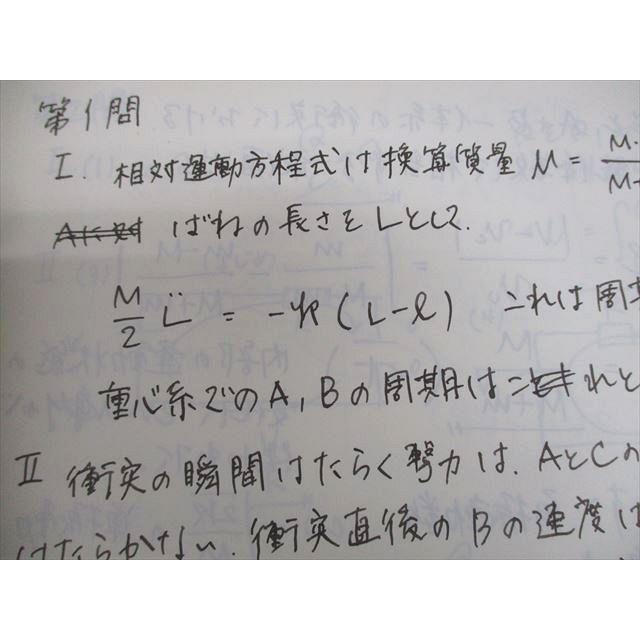 第1問
I. 相対運動方程式は換算質量 M = M・/M+
ばねの長さをLとして.
M/2 L̈ = -k(L-l) これは周
重心系でのA, Bの周期はこれと
II 衝突の瞬間はたらく撃力は、AとCの
はたらかない. 衝突直後のBの速度は